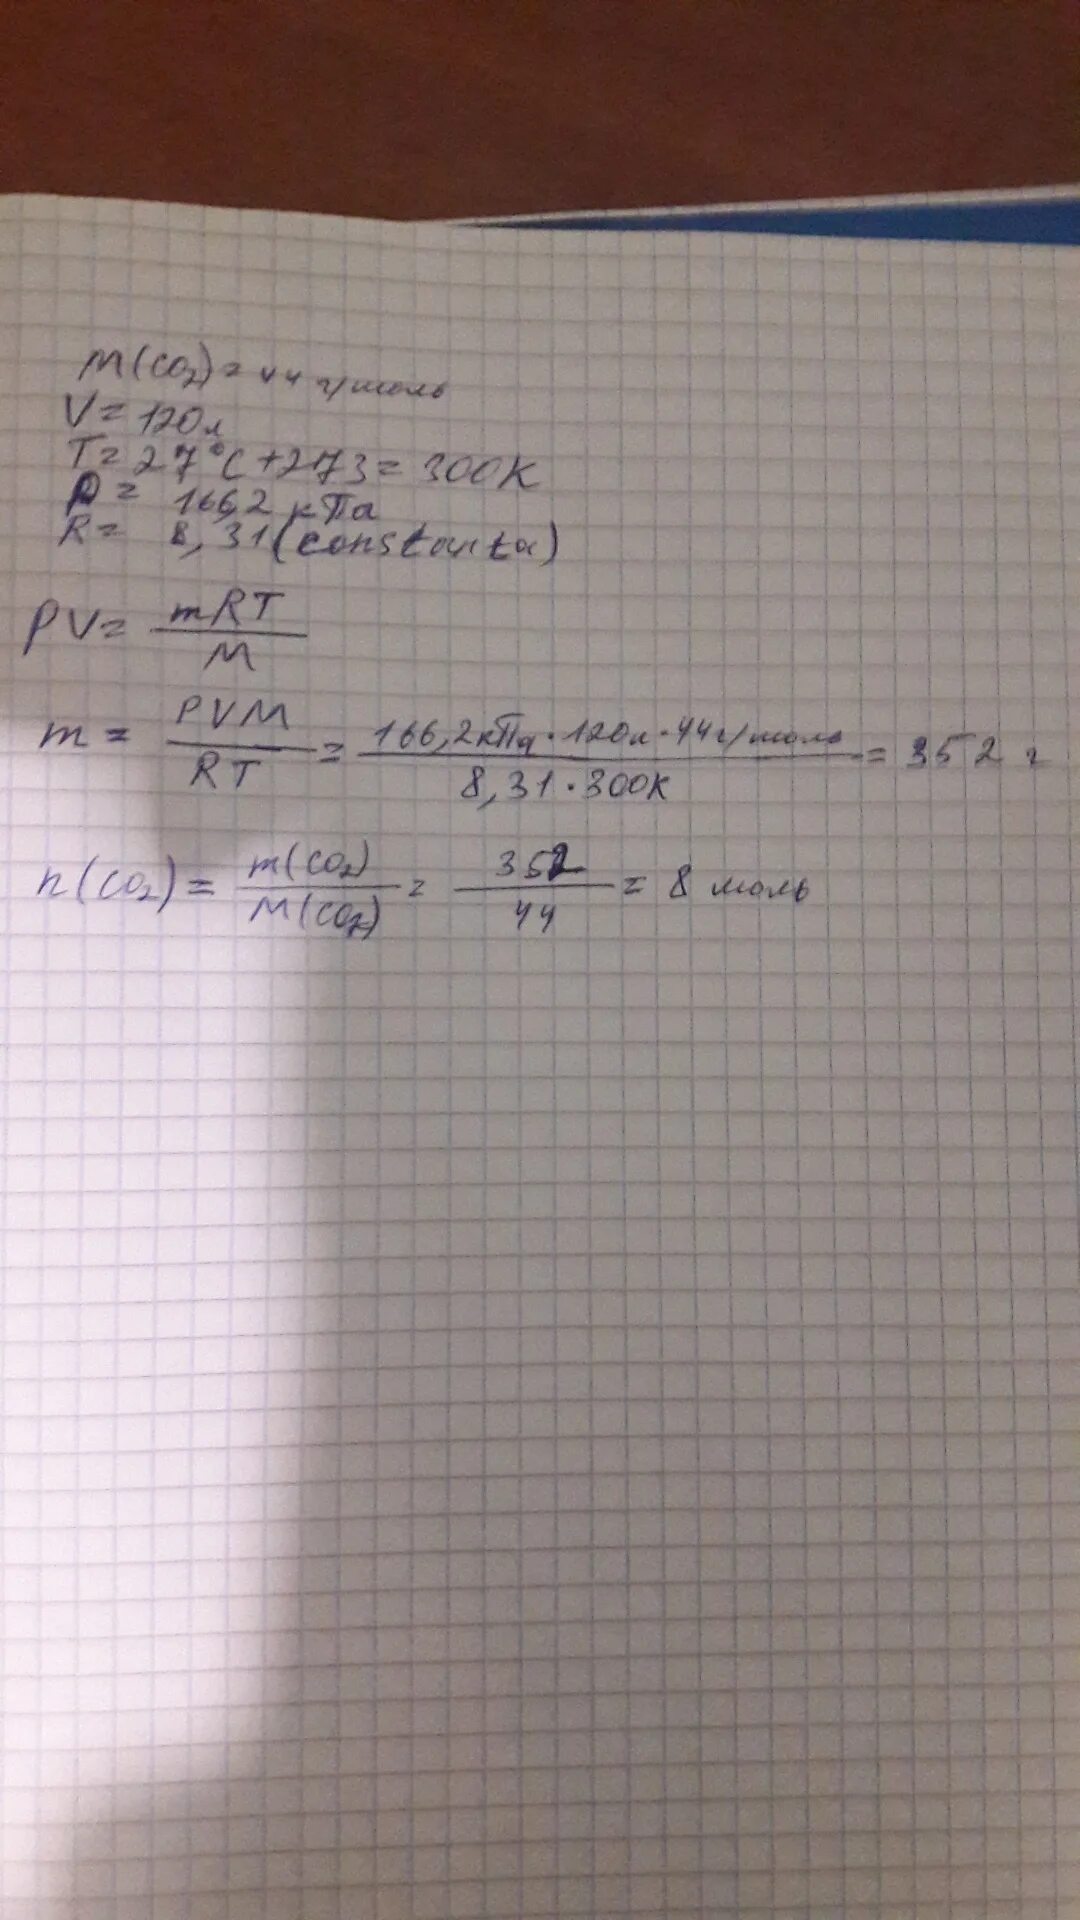 M(CO₂) = 44 г/моль
V = 120 л
T = 27°C + 273 = 300K
P = 166,2 кПа
R = 8,31 (constanta)
PV = mRT / M
m = PVM / RT = 166,2кПа · 120л · 44г/моль / 8,31 · 300K = 352 г
n(CO₂) = m(CO₂) / M(CO₂) = 352 / 44 = 8 моль